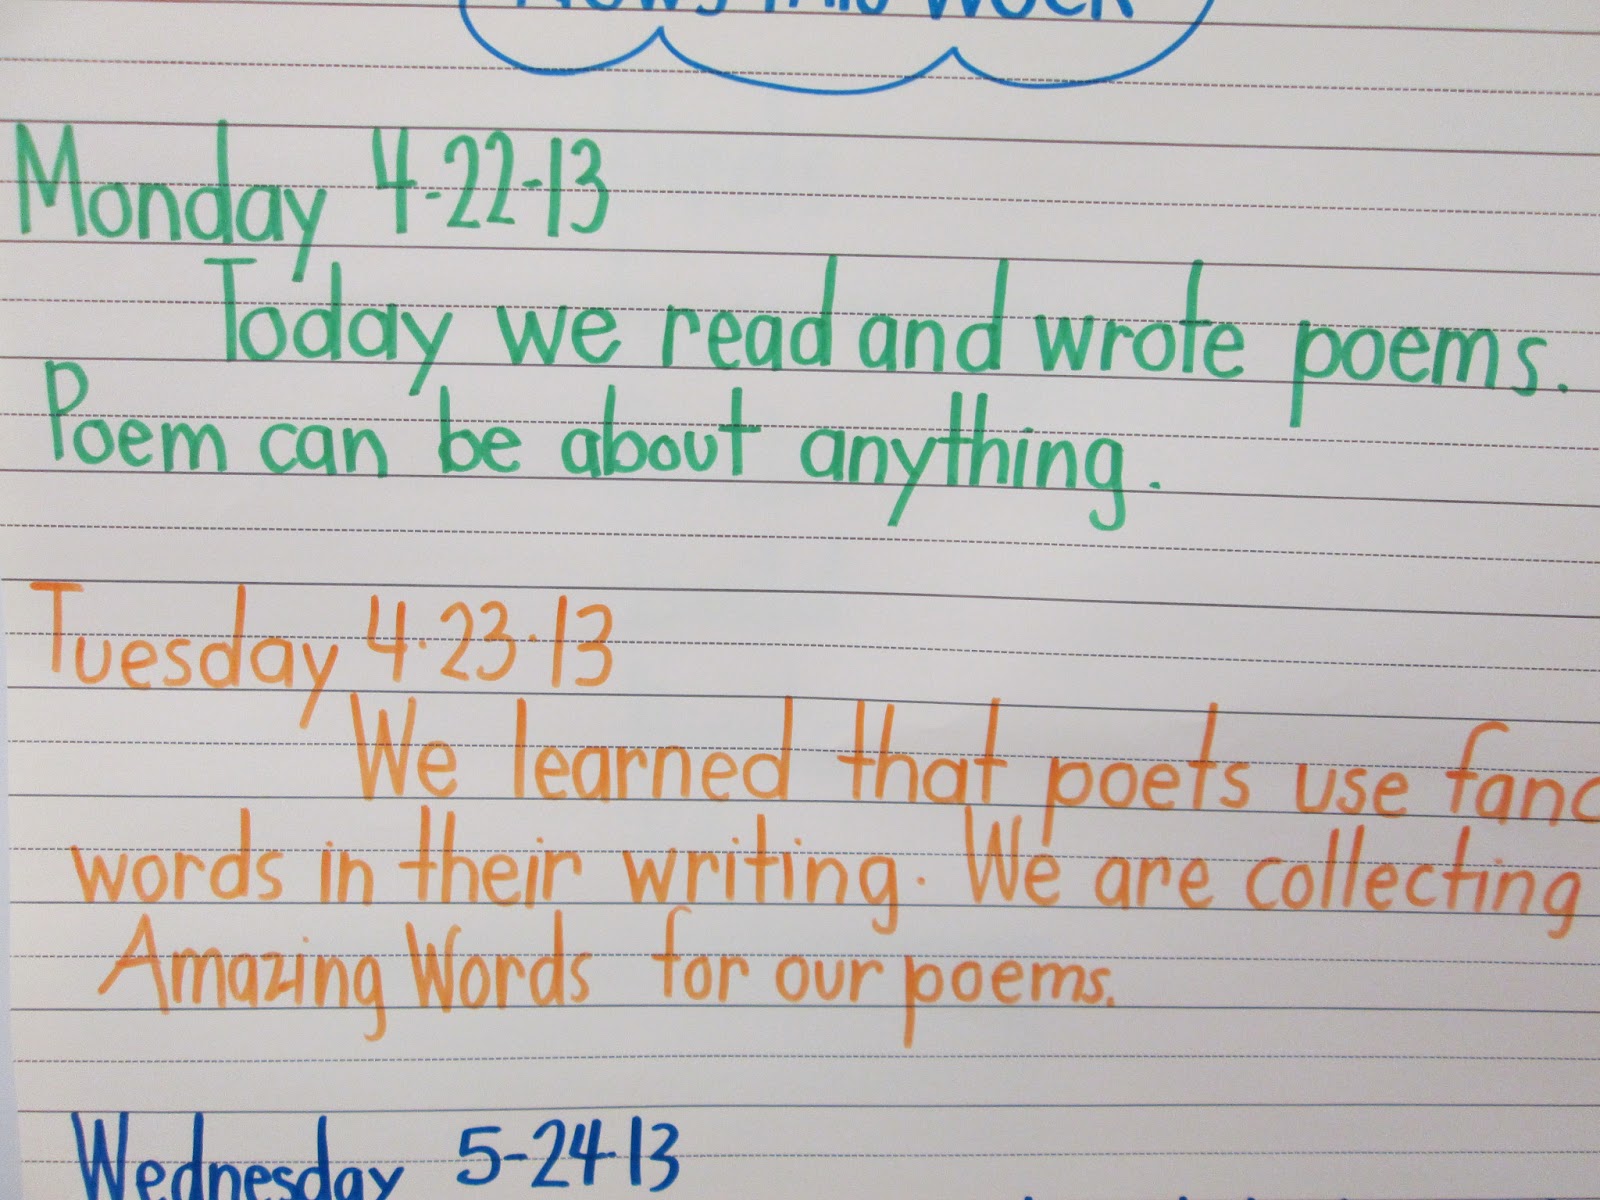 Monday 4-22-13
Today we read and wrote poems.
Poem can be about anything.
Tuesday 4.23.13
We learned that poets use
words in their writing. We are collecting
Amazing Words for our poems.
Wednesday 5-24-13